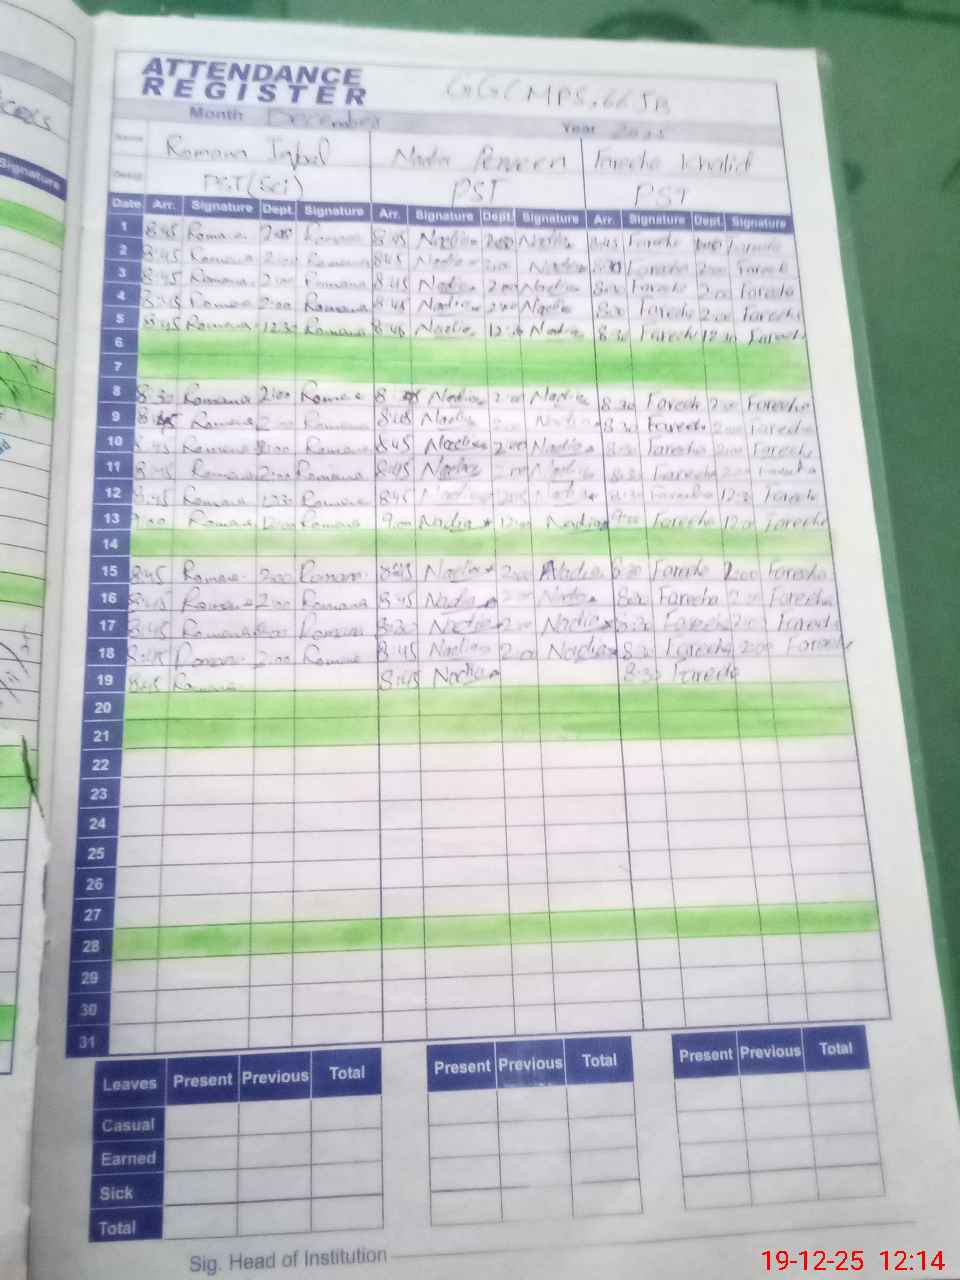 ATTENDANCE
REGISTER
GGCMPS.66JB
Month December Year
Name Romana Iqbal Nadia Perveen Fareeha Khalid
PST(Sci) PST PST
Signature
Date Arr. Signature Dept. Signature Arr. Signature Dept. Signature Arr. Signature Dept. Signature
1 8:45 Romana 2:00 Romana 8:45 Nadia 2:00 Nadia Fareeha Fareeha
2 8:45 Romana 2:00 Romana 8:45 Nadia 2:00 Nadia Fareeha 2:00 Fareeha
3 8:45 Romana 2:00 Romana 8:45 Nadia 2:00 Nadia 8:30 Fareeha 2:00 Fareeha
4 8:45 Romana 2:00 Romana 8:45 Nadia 2:00 Nadia 8:30 Fareeha 2:00 Fareeha
5 8:45 Romana 12:30 Romana 8:45 Nadia Nadia 8:30 Fareeha 12:30 Fareeha
6
7
8 8:30 Romana 2:00 Romana Nadia 2:00 Nadia 8:30 Fareeha 2:00 Fareeha
9 Romana 2:00 Romana 8:45 Nadia Nadia 8:30 Fareeha 2:00 Fareeha
10 8:45 Romana 2:00 Romana 8:45 Nadia 2:00 Nadia 8:30 Fareeha 2:00 Fareeha
11 8:45 Romana 2:00 Romana 8:45 Nadia 2:00 Nadia 8:30 Fareeha 2:00 Fareeha
12 8:45 Romana 12:30 Romana 8:45 Nadia Nadia 8:30 Fareeha 12:30 Fareeha
13 9:00 Romana 12:00 Romana 9:00 Nadia 12:00 Nadia 9:00 Fareeha 12:00 Fareeha
14
15 8:45 Romana 2:00 Romana 8:45 Nadia 2:00 Nadia 8:30 Fareeha 2:00 Fareeha
16 8:45 Romana 2:00 Romana 8:45 Nadia 2:00 Nadia 8:30 Fareeha 2:00 Fareeha
17 8:45 Romana 2:00 Romana 8:30 Nadia 2:00 Nadia 8:30 Fareeha 2:00 Fareeha
18 8:45 Romana 2:00 Romana 8:45 Nadia 2:00 Nadia 8:30 Fareeha 2:00 Fareeha
19 8:45 Romana 8:45 Nadia 8:30 Fareeha
20
21
22
23
24
25
26
27
28
29
30
31
Leaves Present Previous Total Present Previous Total Present Previous Total
Casual
Earned
Sick
Total
Sig. Head of Institution
19-12-25 12:14